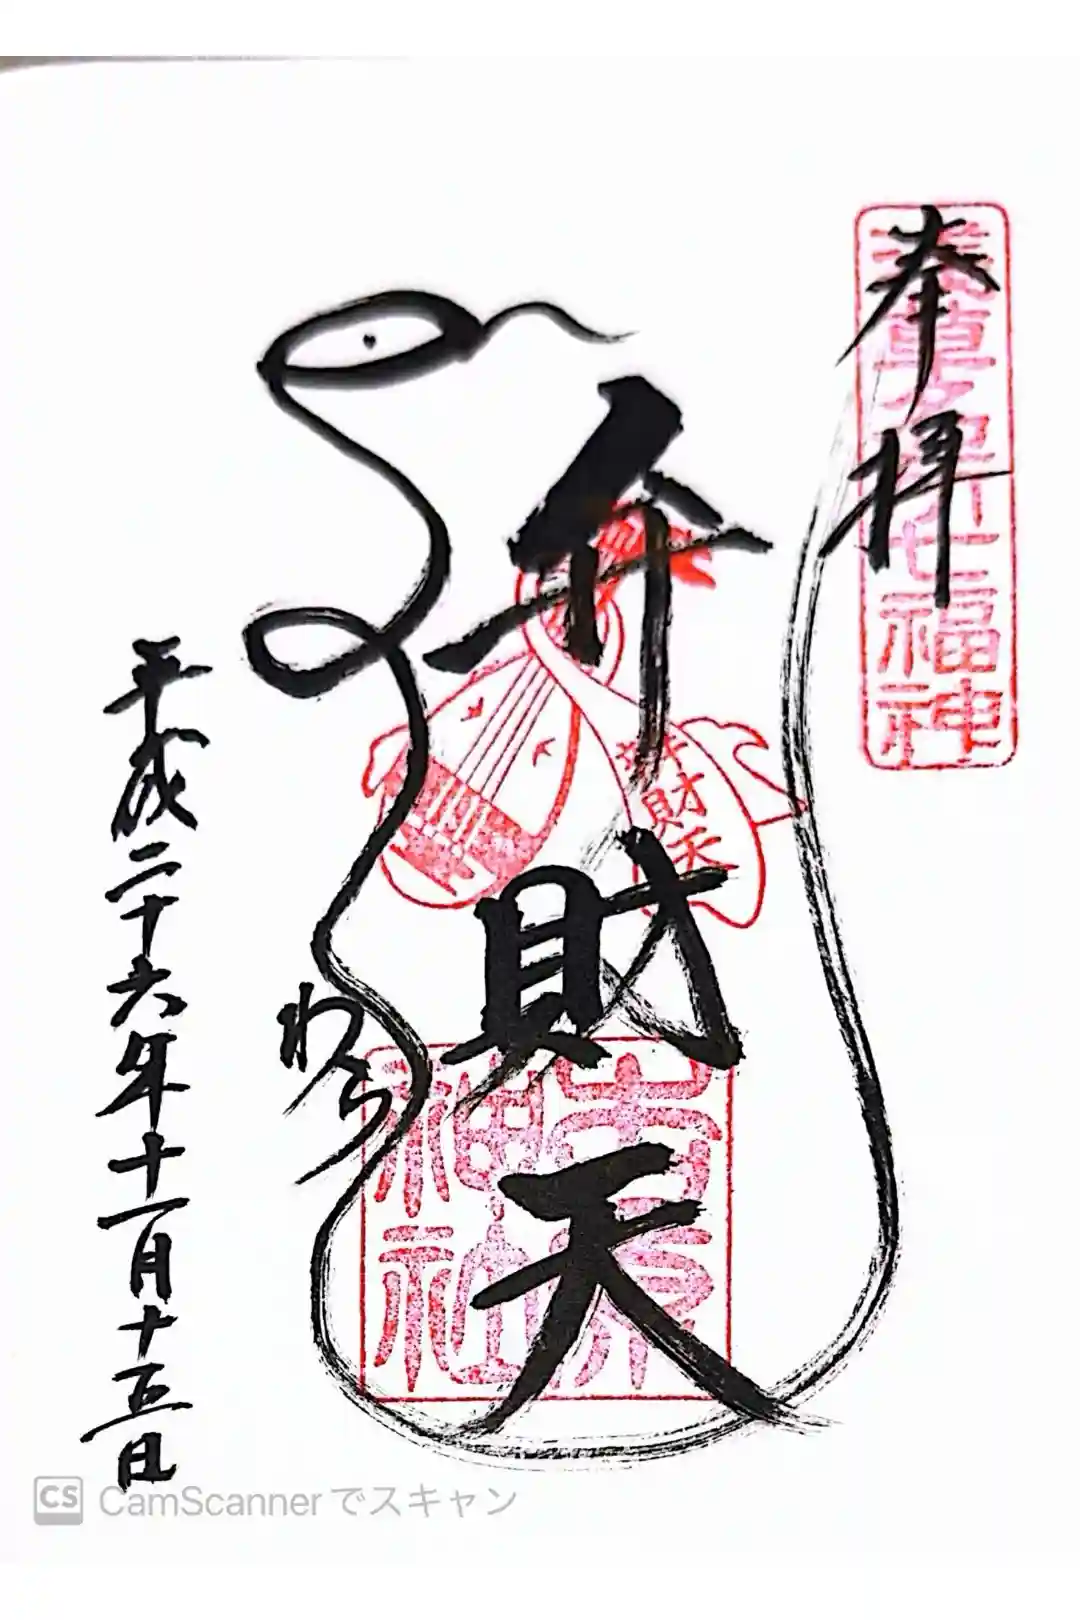 奉拝
浅草名所七福神
弁財天
弁財天
吉原
神社
平成二十六年十一月十五日
CS CamScannerでスキャン